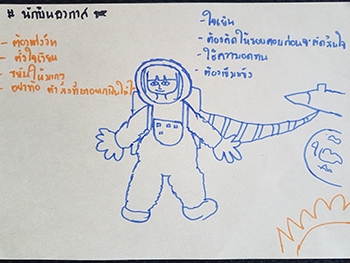 # นักบินอวกาศ
- ต้องฟังวิท
- ตั้งใจเรียน
- ขยันให้มากๆ
- อย่าท้อ ทำสิ่งที่
- ใจเย็น
- ต้องคิดให้รอบคอบก่อนจะตัดสินใจ
- ใช้ความอดทน
- ต้องเข้มแข็ง